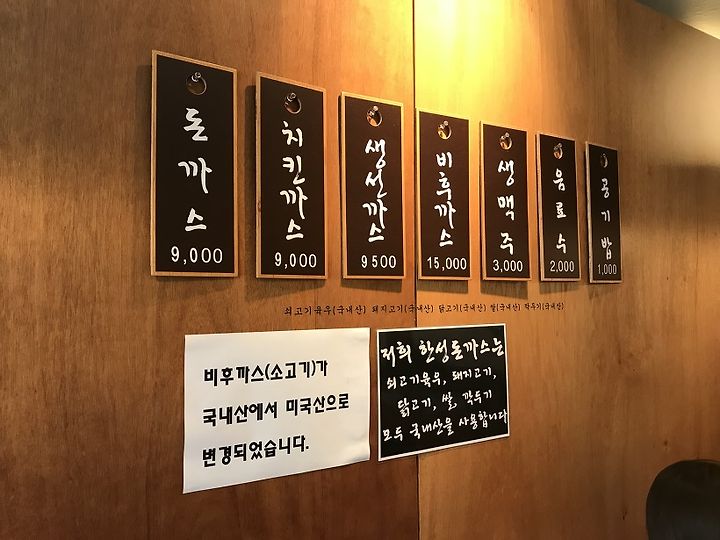 돈까스
9,000
치킨까스
9,000
생선까스
9500
비후까스
15,000
생맥주
3,000
음료수
2,000
공기밥
1,000
쇠고기육우(국내산) 돼지고기(국내산) 닭고기(국내산) 쌀(국내산) 깍두기(국내산)
비후까스(소고기)가
국내산에서 미국산으로
변경되었습니다.
저희 한성돈까스는
쇠고기육우, 돼지고기,
닭고기, 쌀, 깍두기
모두 국내산을 사용합니다